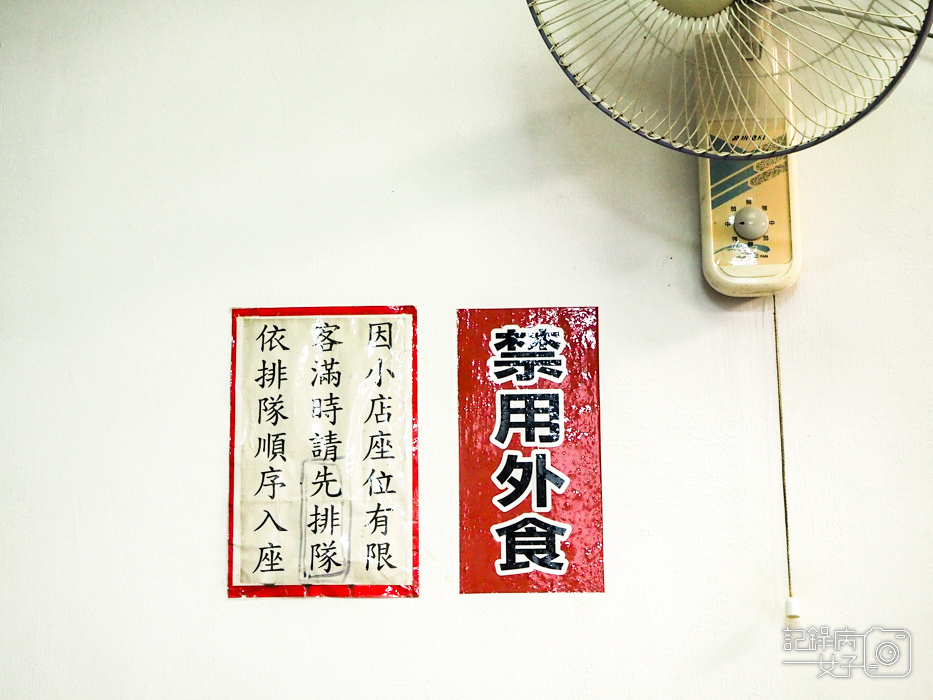 因小店座位有限
客滿時請先排隊
依排隊順序入座
禁用外食
中
中